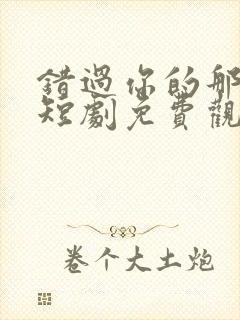 錯過你的那
短劇免費觀
卷个大土炮